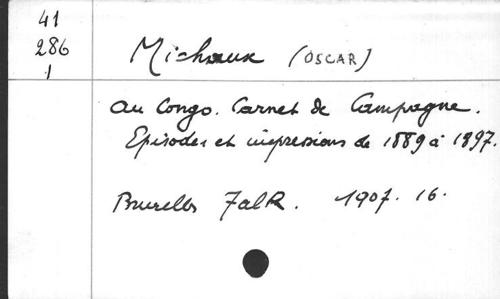 41
286
1
Michaux (OSCAR)
Au Congo. Carnet de Campagne.
Episodes et impressions de 1889 à 1897.
Bruxelles Falk. 1907. 16.